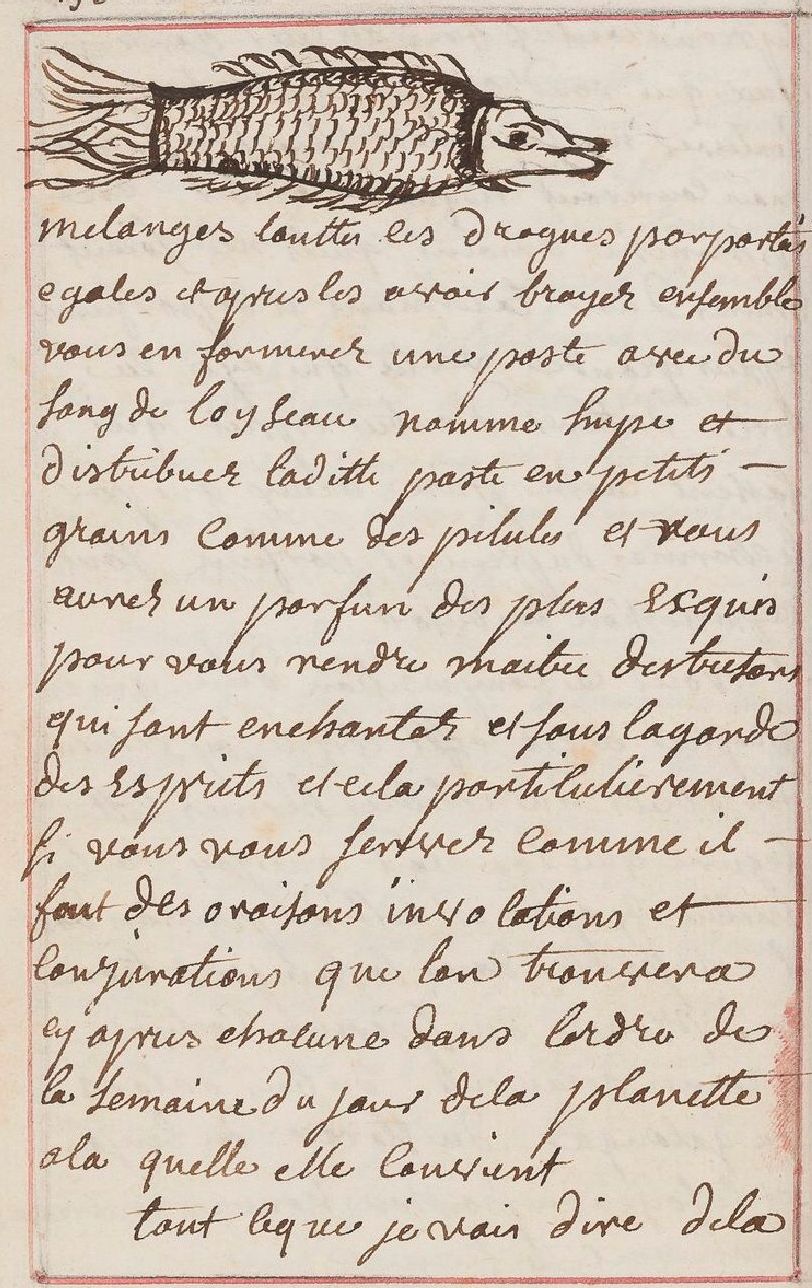 melangez toutte les drogues par partis
egales et apres les avoir brayer ensemble
vous en formerez une paste avec du
sang de loyseau nomme hupe et
distribuez laditte paste en petits
grains comme des pilules et vous
aurez un parfun des plus Exquis
pour vous rendre maitre destresors
qui sont enchantez et sous lagarde
des Esprits et cela partilulierement
si vous vous servez comme il
faut des oraisons invocations et
conjurations que lon trouvera
cy apres chacune dans lordre de
la semaine du jour dela planette
ala quelle elle convient
tout ceque je vais dire dela